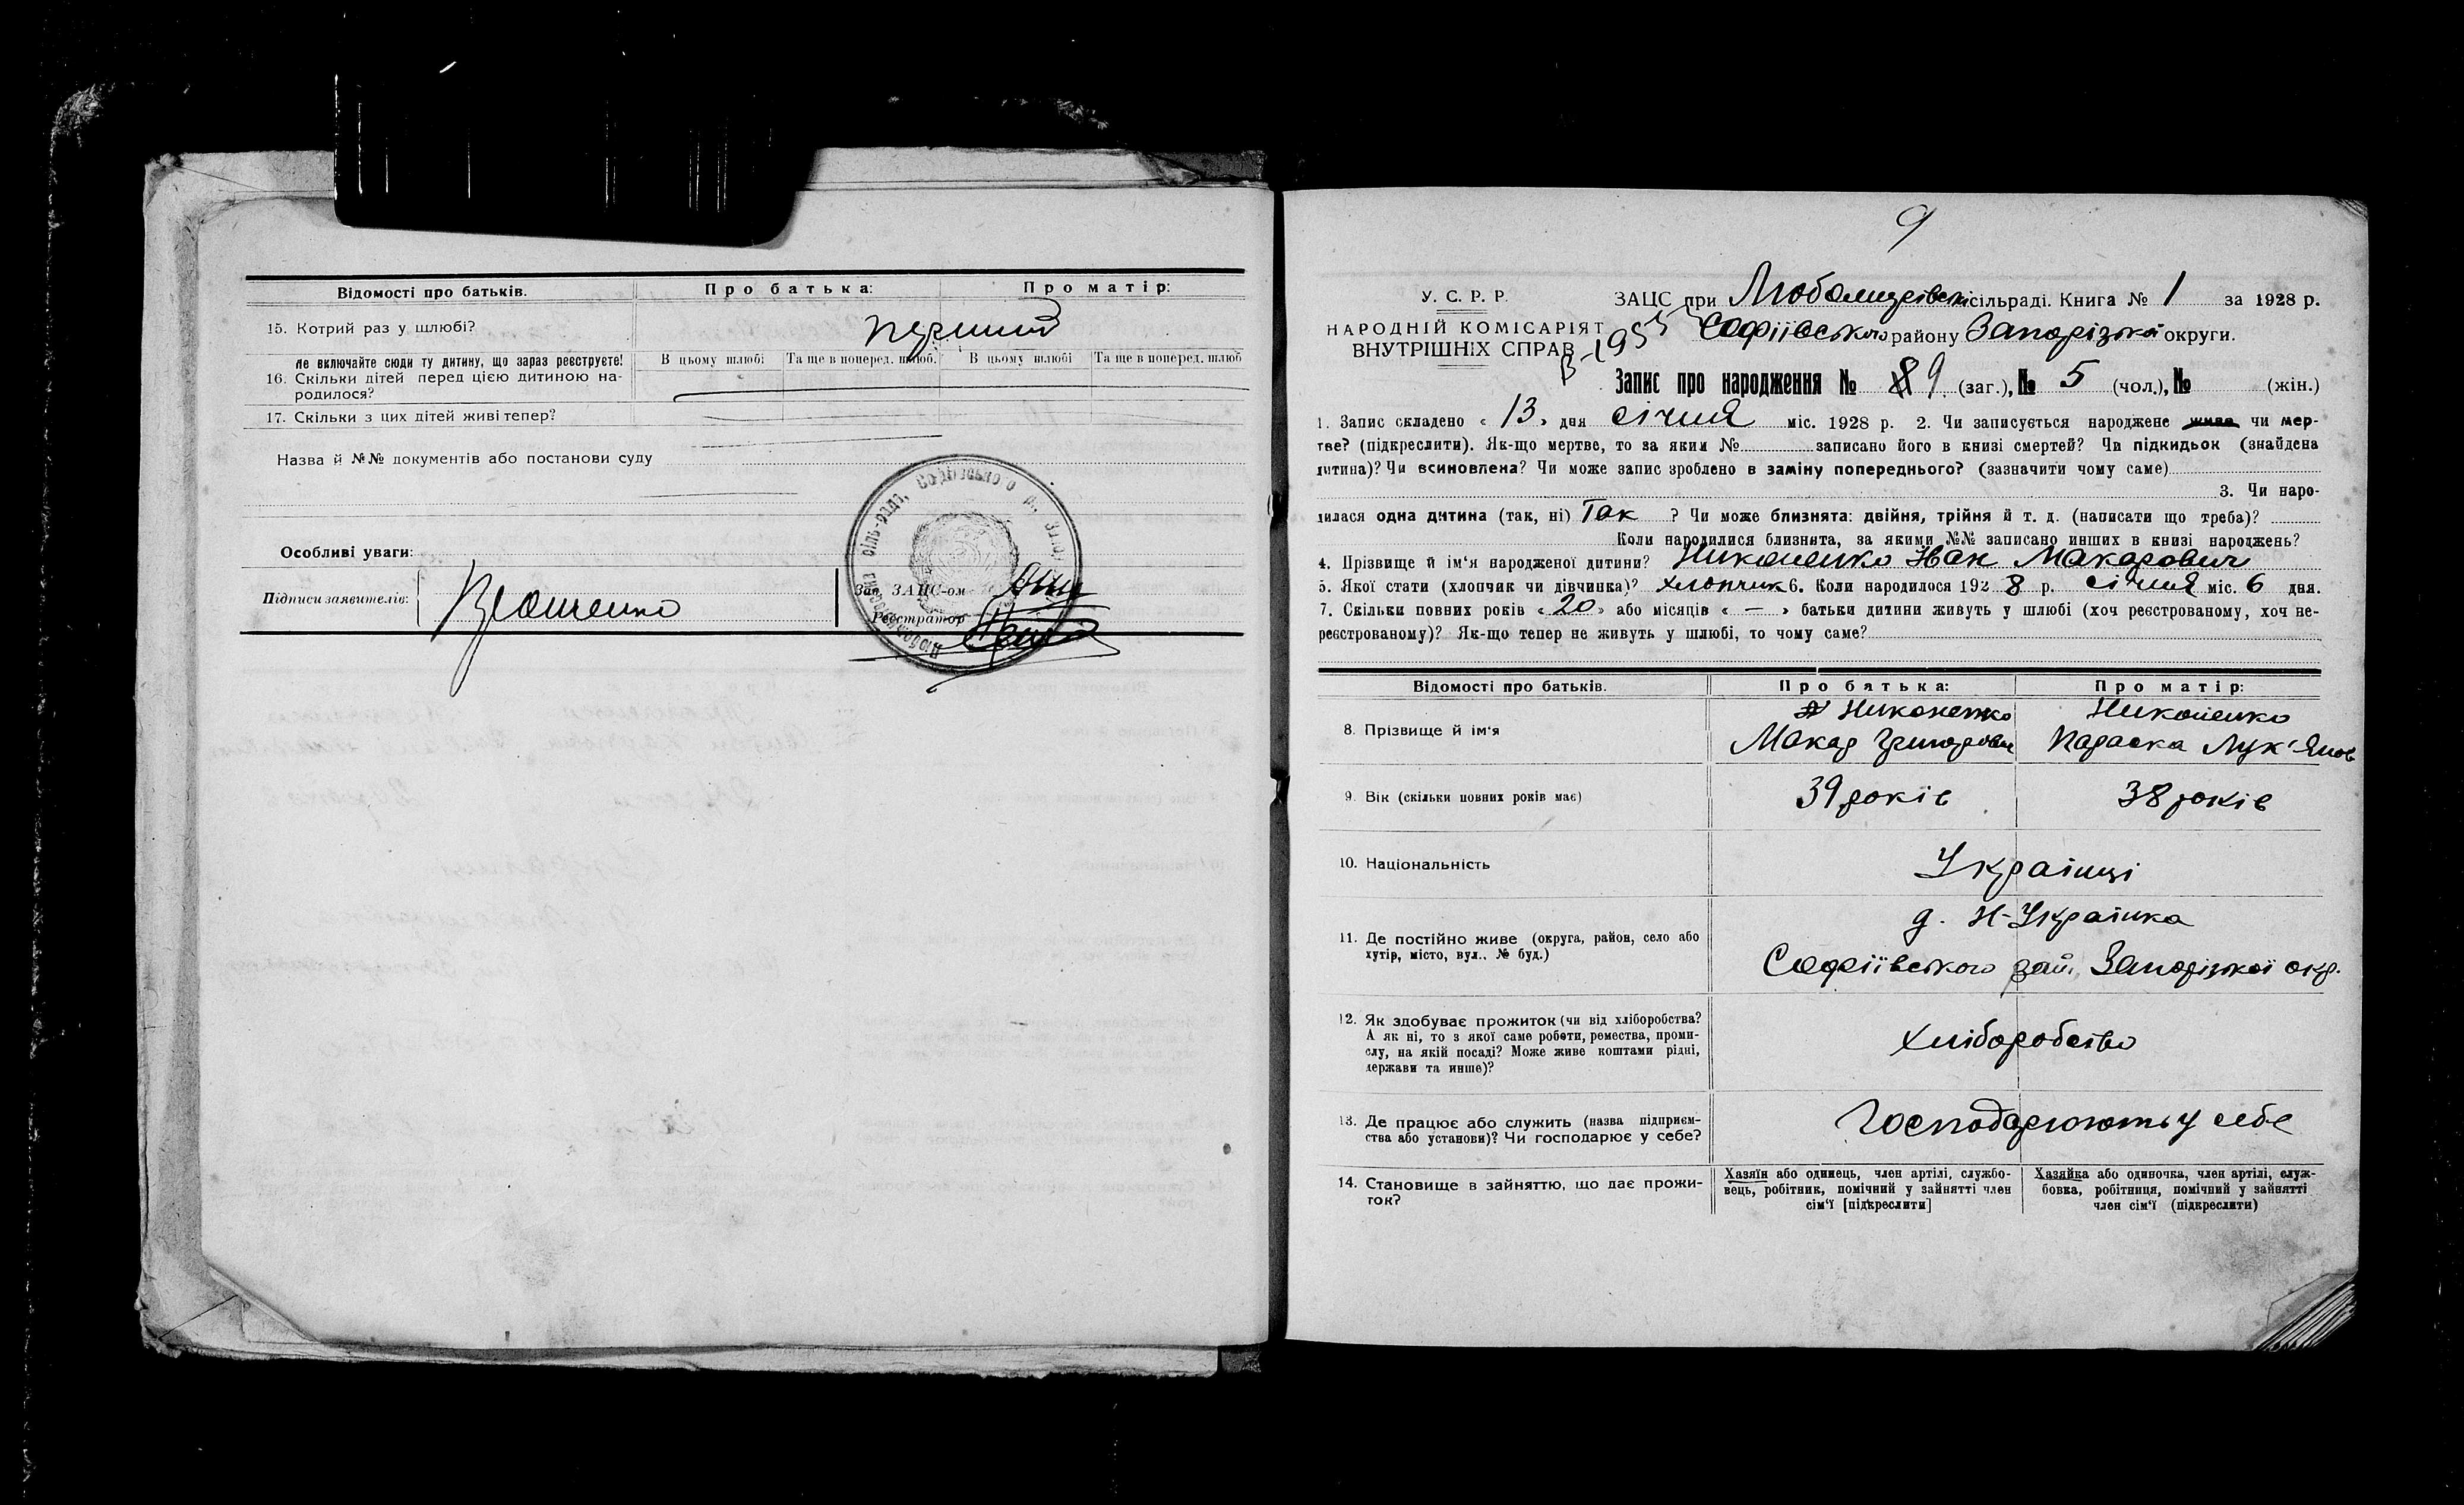 Відомості про батьків. Про батька: Про матір:
15. Котрий раз у шлюбі? перший
Не включайте сюди ту дитину, що зараз реєструєте! В цьому шлюбі Та ще в поперед. шлюб. В цьому шлюбі Та ще в поперед. шлюб
16. Скільки дітей перед цією дитиною на-
родилося?
17. Скільки з цих дітей живі тепер?
Назва й №№ документів або постанови суду
Особливі уваги:
Підписи заявителів:
Зав. ЗАЦС-ом
Реєстратор
9
У. С. Р. Р.
НАРОДНІЙ КОМІСАРІЯТ
ВНУТРІШНІХ СПРАВ
ЗАЦС при Любомирівській сільраді. Книга № 1 за 1928 р.
Софіївського району Запорізької округи.
Запис про народження № 9 (заг.), № 5 (чол.), № (жін.)
1. Запис складено « 13 » дня січня міс. 1928 р. 2. Чи записується народжене живе чи мер-
тве? (підкреслити). Як-що мертве, то за яким № записано його в книзі смертей? Чи підкидьок (знайдена
дитина)? Чи всиновлена? Чи може запис зроблено в заміну попереднього? (зазначити чому саме)
3. Чи наро-
дилася одна дитина (так, ні) Так ? Чи може близнята: двійня, трійня й т. д. (написати що треба)?
Коли народилися близнята, за якими №№ записано инших в книзі народжень?
4. Прізвище й ім'я народженої дитини? Никоненко Іван Макарович
5. Якої стати (хлопчик чи дівчинка)? хлопчик 6. Коли народилося 1928 р. січня міс. 6 дня.
7. Скільки повних років « 20 » або місяців « — » батьки дитини живуть у шлюбі (хоч реєстрованому, хоч не-
реєстрованому)? Як-що тепер не живуть у шлюбі, то чому саме?
Відомості про батьків. Про батька: Про матір:
8. Прізвище й ім'я
Никоненко Макар Григорович
Никоненко Параска Лук'янов
9. Вік (скільки повних років має) 39 років 38 років
10. Національність Українці
11. Де постійно живе (округа, район, село або
хутір, місто, вул., № буд.)
д. Н-Українка
Софіївського рай. Запорізької окр.
12. Як здобуває прожиток (чи від хліборобства?
А як ні, то з якої саме роботи, ремества, проми-
слу, на якій посаді? Може живе коштами рідні,
держави та инше)?
хліборобство
13. Де працює або служить (назва підприєм-
ства або установи)? Чи господарює у себе?
Господарюють у себе
14. Становище в зайняттю, що дає прожи-
ток?
Хазяїн або одинець, член артілі, службо-
вець, робітник, помічний у зайнятті член
сім'ї [підкреслити]
Хазяйка або одиночка, член артілі, служ-
бовка, робітниця, помічний у зайнятті
член сім'ї (підкреслити)